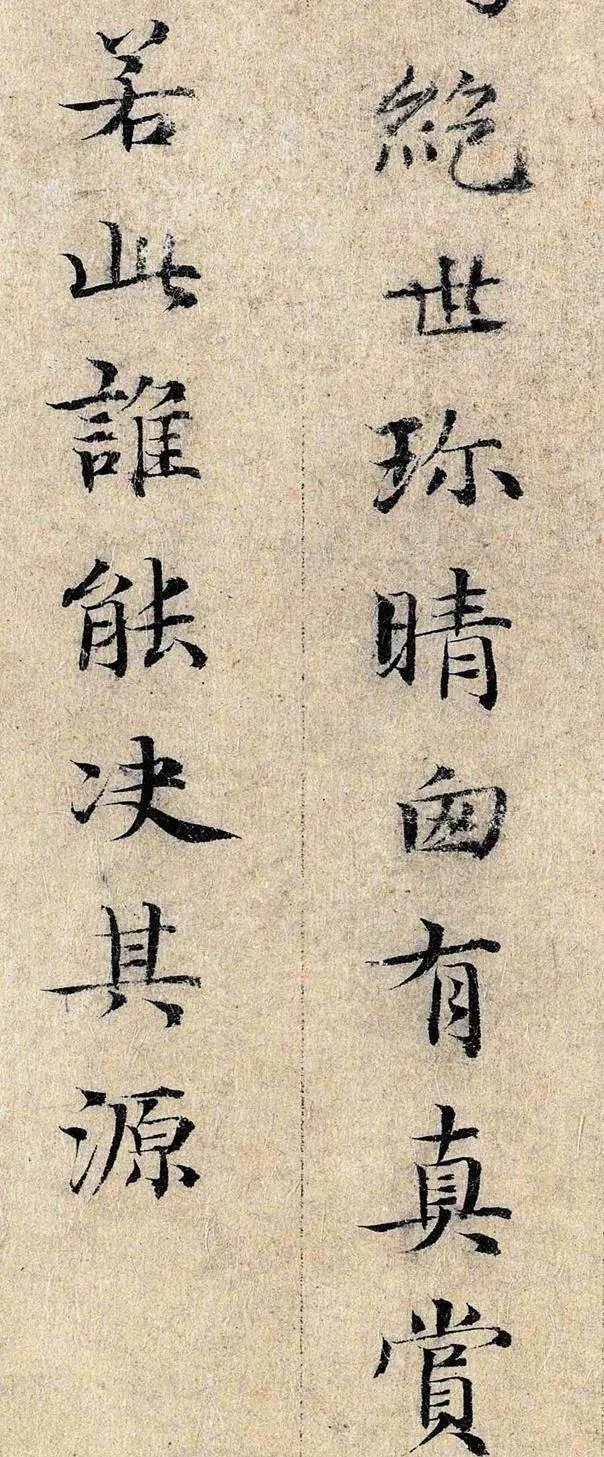 絕世珎晴囪有真賞
若此誰能決其源